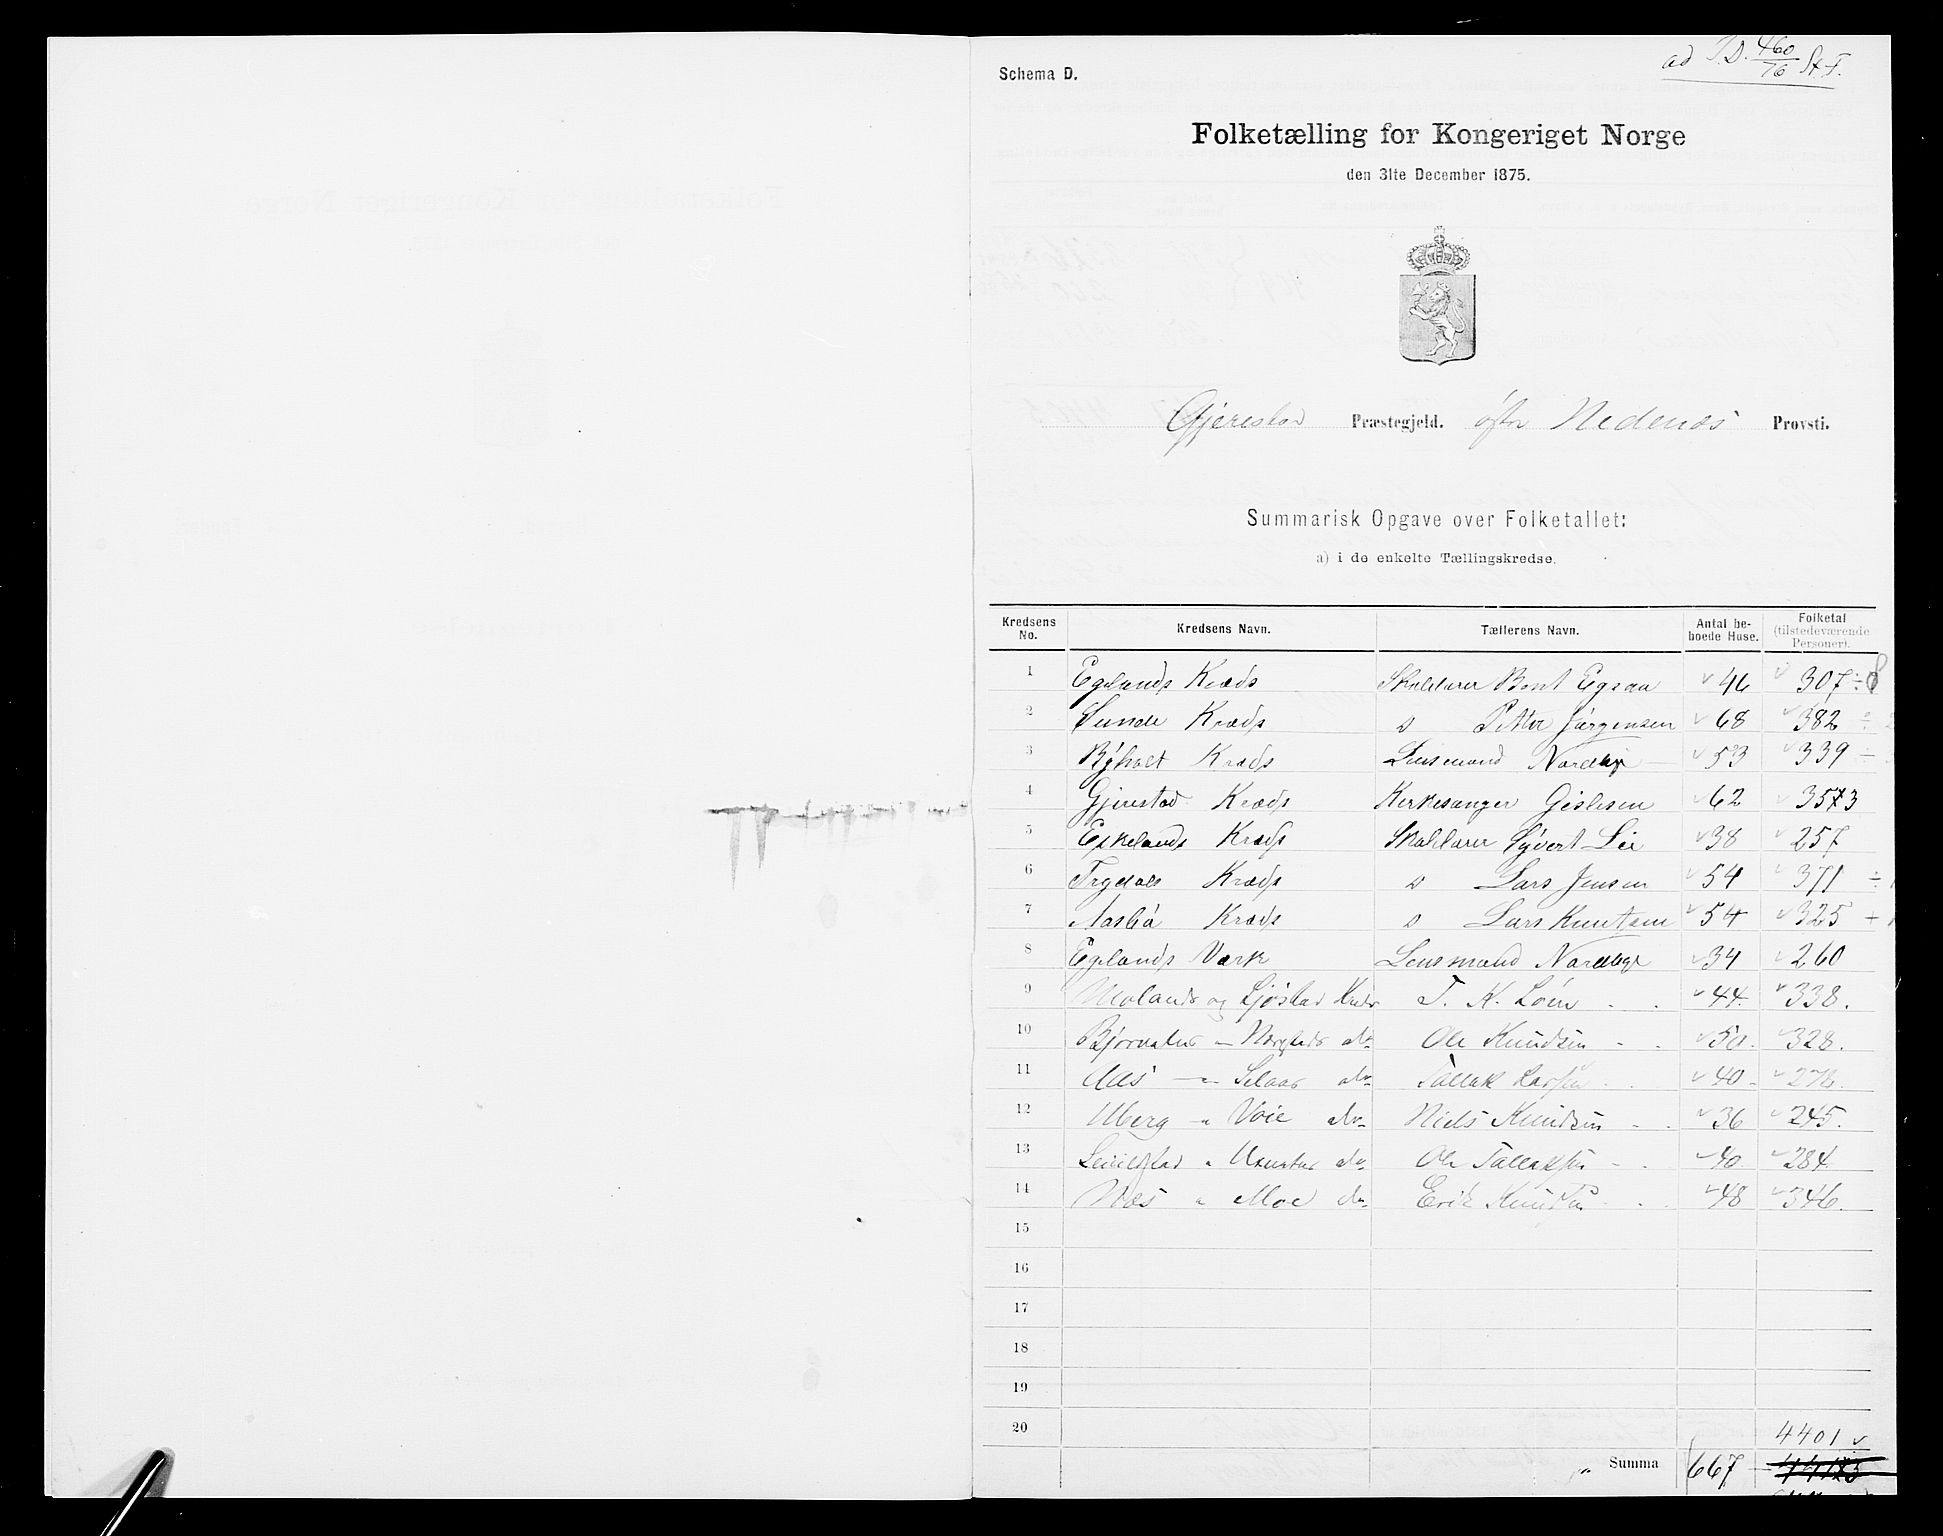 ad T.D. 460/76 St. F.
Schema D.
Folketælling for Kongeriget Norge
den 31te December 1875.
Gjerestad Præstegjeld. østre Nedenæs Provsti.
Summarisk Opgave over Folketallet:
a) i de enkelte Tællingskredse.
Kredsens No. Kredsens Navn. Tællerens Navn. Antal beboede Huse. Folketal (tilstedeværende Personer).
1 Egelands Kreds Skolelærer Bent 46 307
2 Sunde Kreds Petter Jørgensen 68 382
3 Ryholt Kreds Lensmand 53 339
4 Gjerestad Kreds Kirkesanger Gislesen 62 3573
5 Eskelands Kreds Skolelærer Syvert Lie 38 257
6 Trydals Kreds Lars Jensen 54 371
7 Aasbø Kreds Lars Knutsen 54 325
8 Egelands Værk Lensmand 34 260
9 Molands og Kreds T. K. 44. 338.
10 Ole Knudsen 50. 328.
11 Aas do Tallak Larsen 40 278.
12 Uberg Voie do Niels Knudsen 36 245.
13 do Ole Tallaksen 40 284.
14 Næs Moe do Erik Knudsen 48 346.
15
16
17
18
19
20
4401
Summa 667